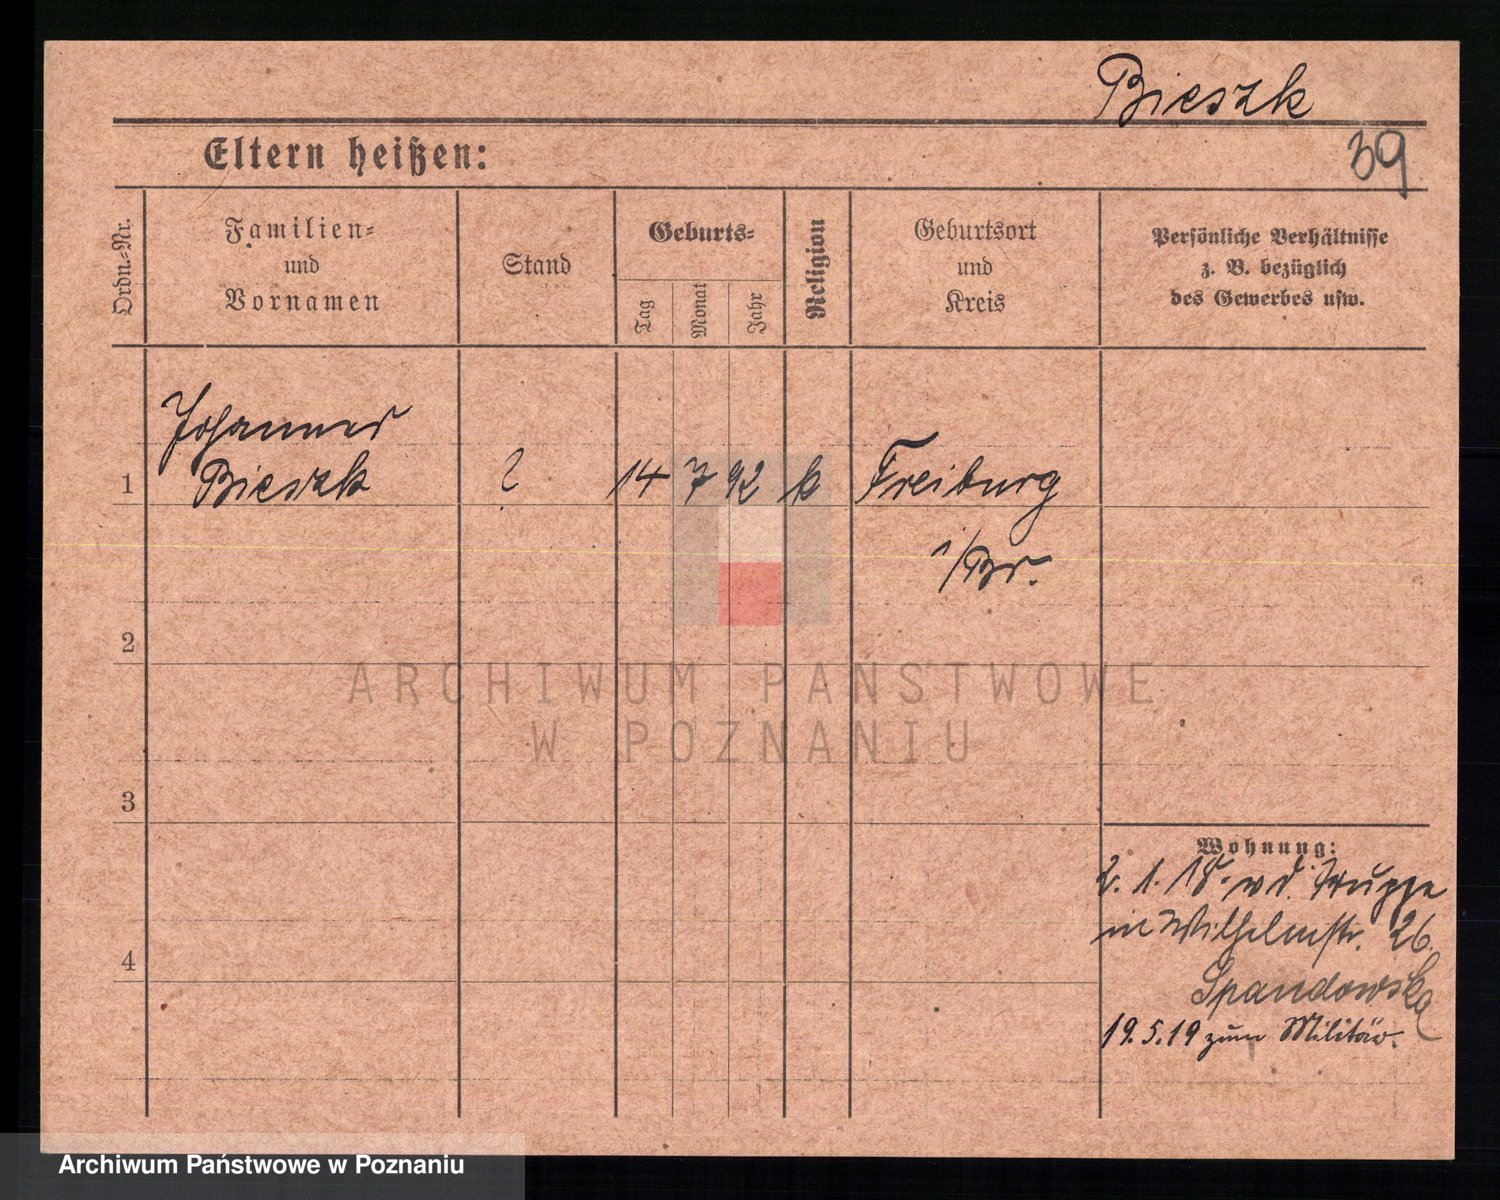 Bieszk
39
Eltern heißen:
Ordn.-Nr.
Familien-
und
Vornamen
Stand
Geburts-
Tag
Monat
Jahr
Religion
Geburtsort
und
Kreis
Persönliche Verhältnisse
z. B. bezüglich
des Gewerbes usw.
Johannes
1 Bieszk ? 14 7 92 k Freiburg
i/Br.
2
3
4
Wohnung:
2. 1. 18. v d. Truppe
in Wilhelmstr. 26.
Spandowska
19. 5. 19 zum Militär.
ARCHIWUM PAŃSTWOWE
W POZNANIU
Archiwum Państwowe w Poznaniu